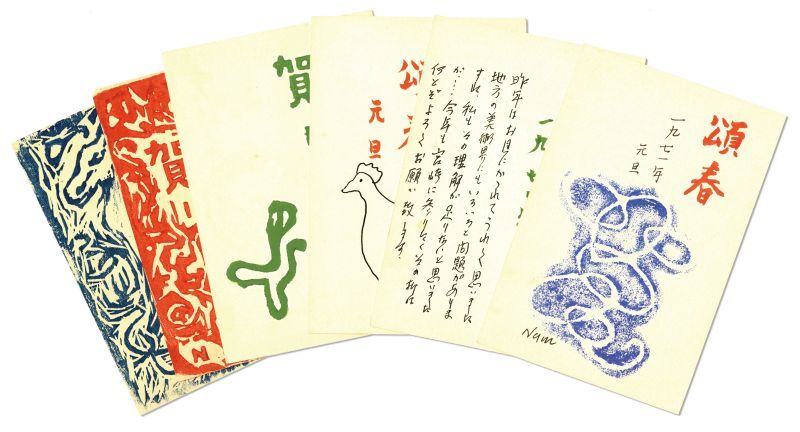 頌春
一九七一年
元旦
Nam
一九七
昨年はお目にかゝれてうれしく思いました
地方の美術界にもいろいろと問題がありま
すね、私もその理解が足りないと思いました
が…今年も宮崎に参りたくその折は
何とぞよろしくお願い致します。
頌春
元旦
賀
賀